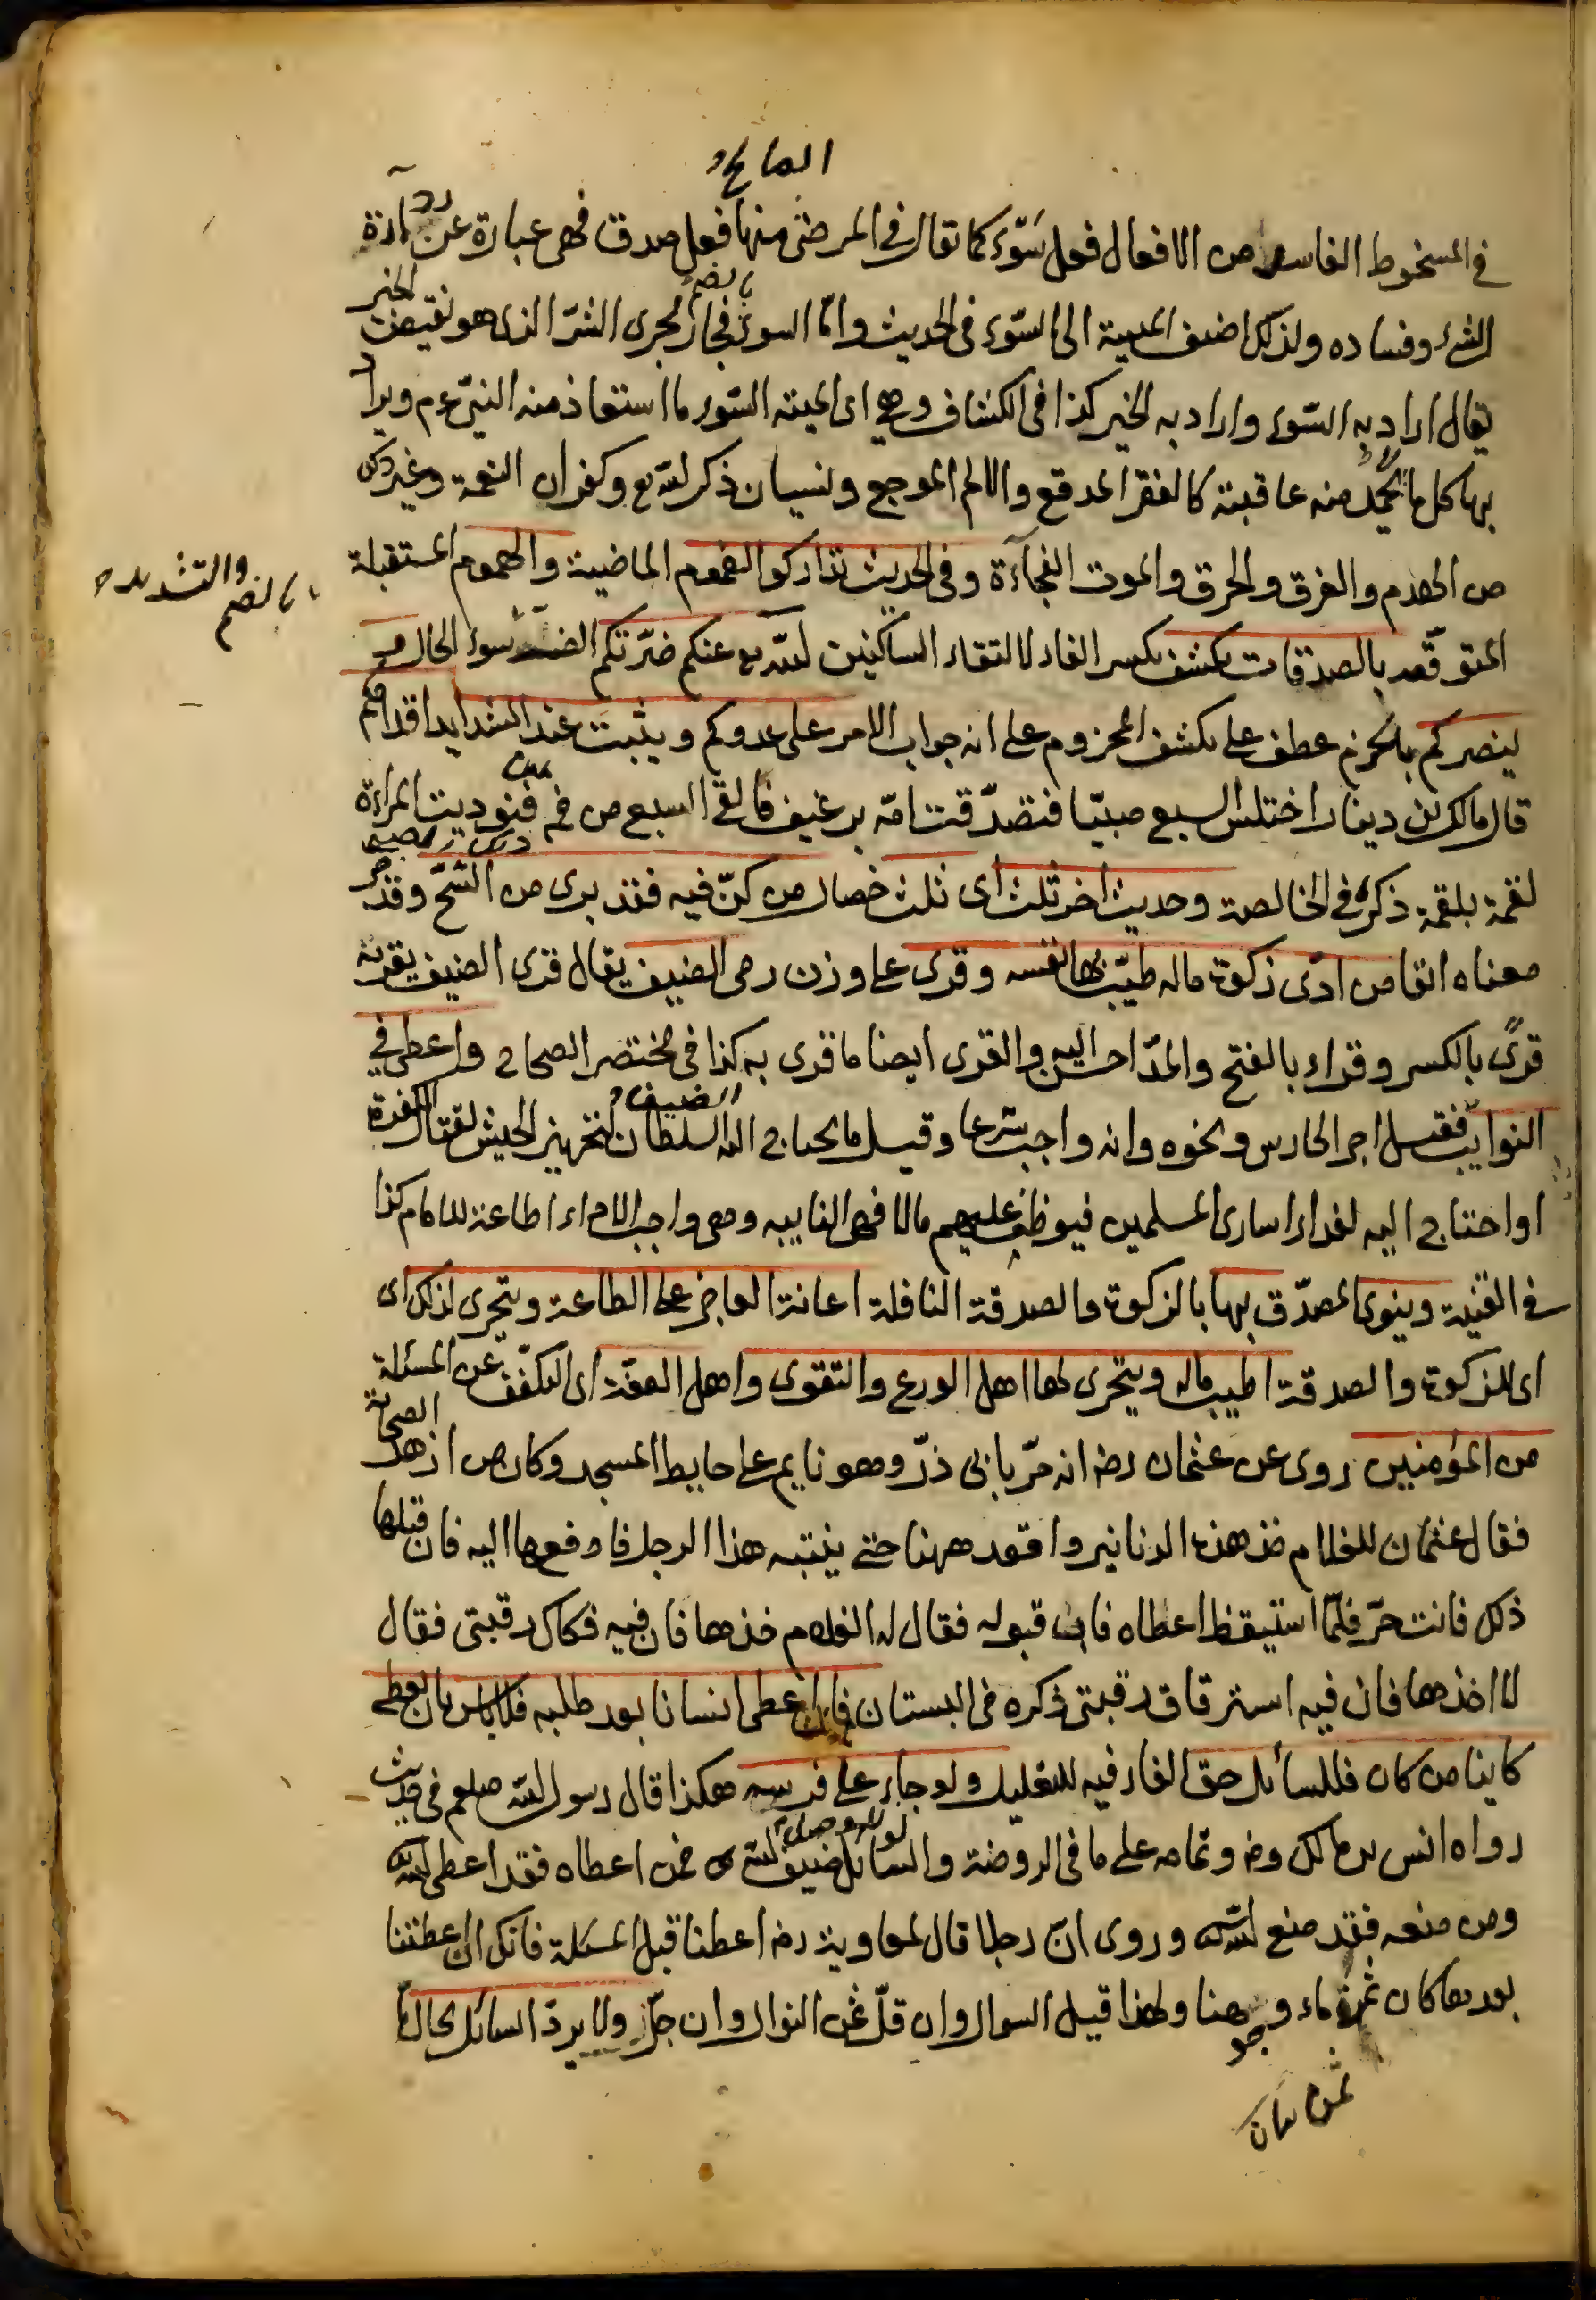 الصالح
في المسخوط الفاسد من الافعال فعل سَوْء كما تقال في المرضى منها فعل صدق فهى عبارة عن ردآءة
الشئ وفساده ولذلك اضيف الميتة الى السَّوء فى الحديث وامّا السوء بالضم فجار مجرى الشرّ الذى هو نقيض الخير
يقال اراد به السّوء واراد به الخير كذا فى الكشاف وهى اى الميتة السّوء ما استعاذ منه النبىّ عم ويراد
بها كل ما لا يحمد منه عاقبته كالفقر المدقع والالم الموجع ونسيان ذكر الله تع وكفران النعمة وغير ذلك
من الهدم والغرق والحرق والموت الفجآءة وفى الحديث تداركوا الغموم الماضية والهموم المستقبلة
بالضم والتشديد
المتوقّعه بالصدقات يكشف بكسر الفاء لالتقاء الساكنين الله تع عنكم ضرّتكم سوء الحال و
ينصركم بالجزم عطف على يكشف المجزوم على انه جواب الامر على عدوكم ويثبت عند الشدايد اقدامكم
قال مالك بن دينار اختلس السبع صبيّا فتصدّقت امّه برغيف فالقى السبع من فمه فنوديت المراءة
لقمة بلقمة ذكره فى الخالصة وحديث اخر ثلث اى ثلث خصال من كنّ فيه فقد برى من الشحّ وقد مر
معناه انفا من ادّى زكوة ماله طيّب بها نفسه وقرى على وزن رمى الضيف يقال قرى الضيف يقريه
قرًى بالكسر وقراء بالفتح والمدّ احسن اليه والقرى ايضا ما قرى به الضيف كذا فى مختصر الصحاح واعطى فى
النوايب فقيل اجر الحارس ونحوه وانه واجب شرعا وقيل ما يحتاج اليه السلطان لتجهيز الجيش لقتال الكفرة
او احتاج اليه لفداء اسارى المسلمين فيوظف عليهم مالا فهى النايبه وهى واجب الاداء اطاعة للامام كذا
فى القنية وينوى المصدّق بها بالزكوة والصدقة النافلة اعانة العاجز على الطاعة ويتحرى لذلك اى
اى للزكوة والصدقة اطيب ماله ويتحرى لها اهل الورع والتقوى واهل العفّة اى التكفّف عن المسئلة
من المؤمنين روى عن عثمان رضه انه مرّ بابى ذرّ وهو نايم على حايط المسجد وكان من ازهد الصحابة
فقال عثمان للغلام خذ هذه الدنانير واقعد ههنا حتى ينتبه هذا الرجل فادفعها اليه فان قبلها
ذلك فانت حرّ فلمّا استيقظ اعطاه فابى قبوله فقال له الغلام خذها فان فيه فكاك رقبتى فقال
لا اخذها فان فيه استرقاق رقبتى ذكره فى البستان فان اعطى انسانا بعد طلبه فلا باس بان يعطى
كاينا من كان فللسائل حق الفاء فيه للتعليل ولو جاء على فرسه هكذا قال رسول الله صلعم فى حديث
رواه انس بن مالك رضه وتمامه على ما فى الروضة والسائل ضيف الله تع فمن اعطاه فقد اعطى الله
ومن منعه فقد منع الله وروى انّ رجلا قال لمعاوية رضه اعطنا قبل المسئلة فانك ان اعطيتنا
بعدها كان ثمن ماء وجوهنا ولهذا قيل السوال وان قلّ ثمن النوال وان جلّ ولا يردّ السائل بحال